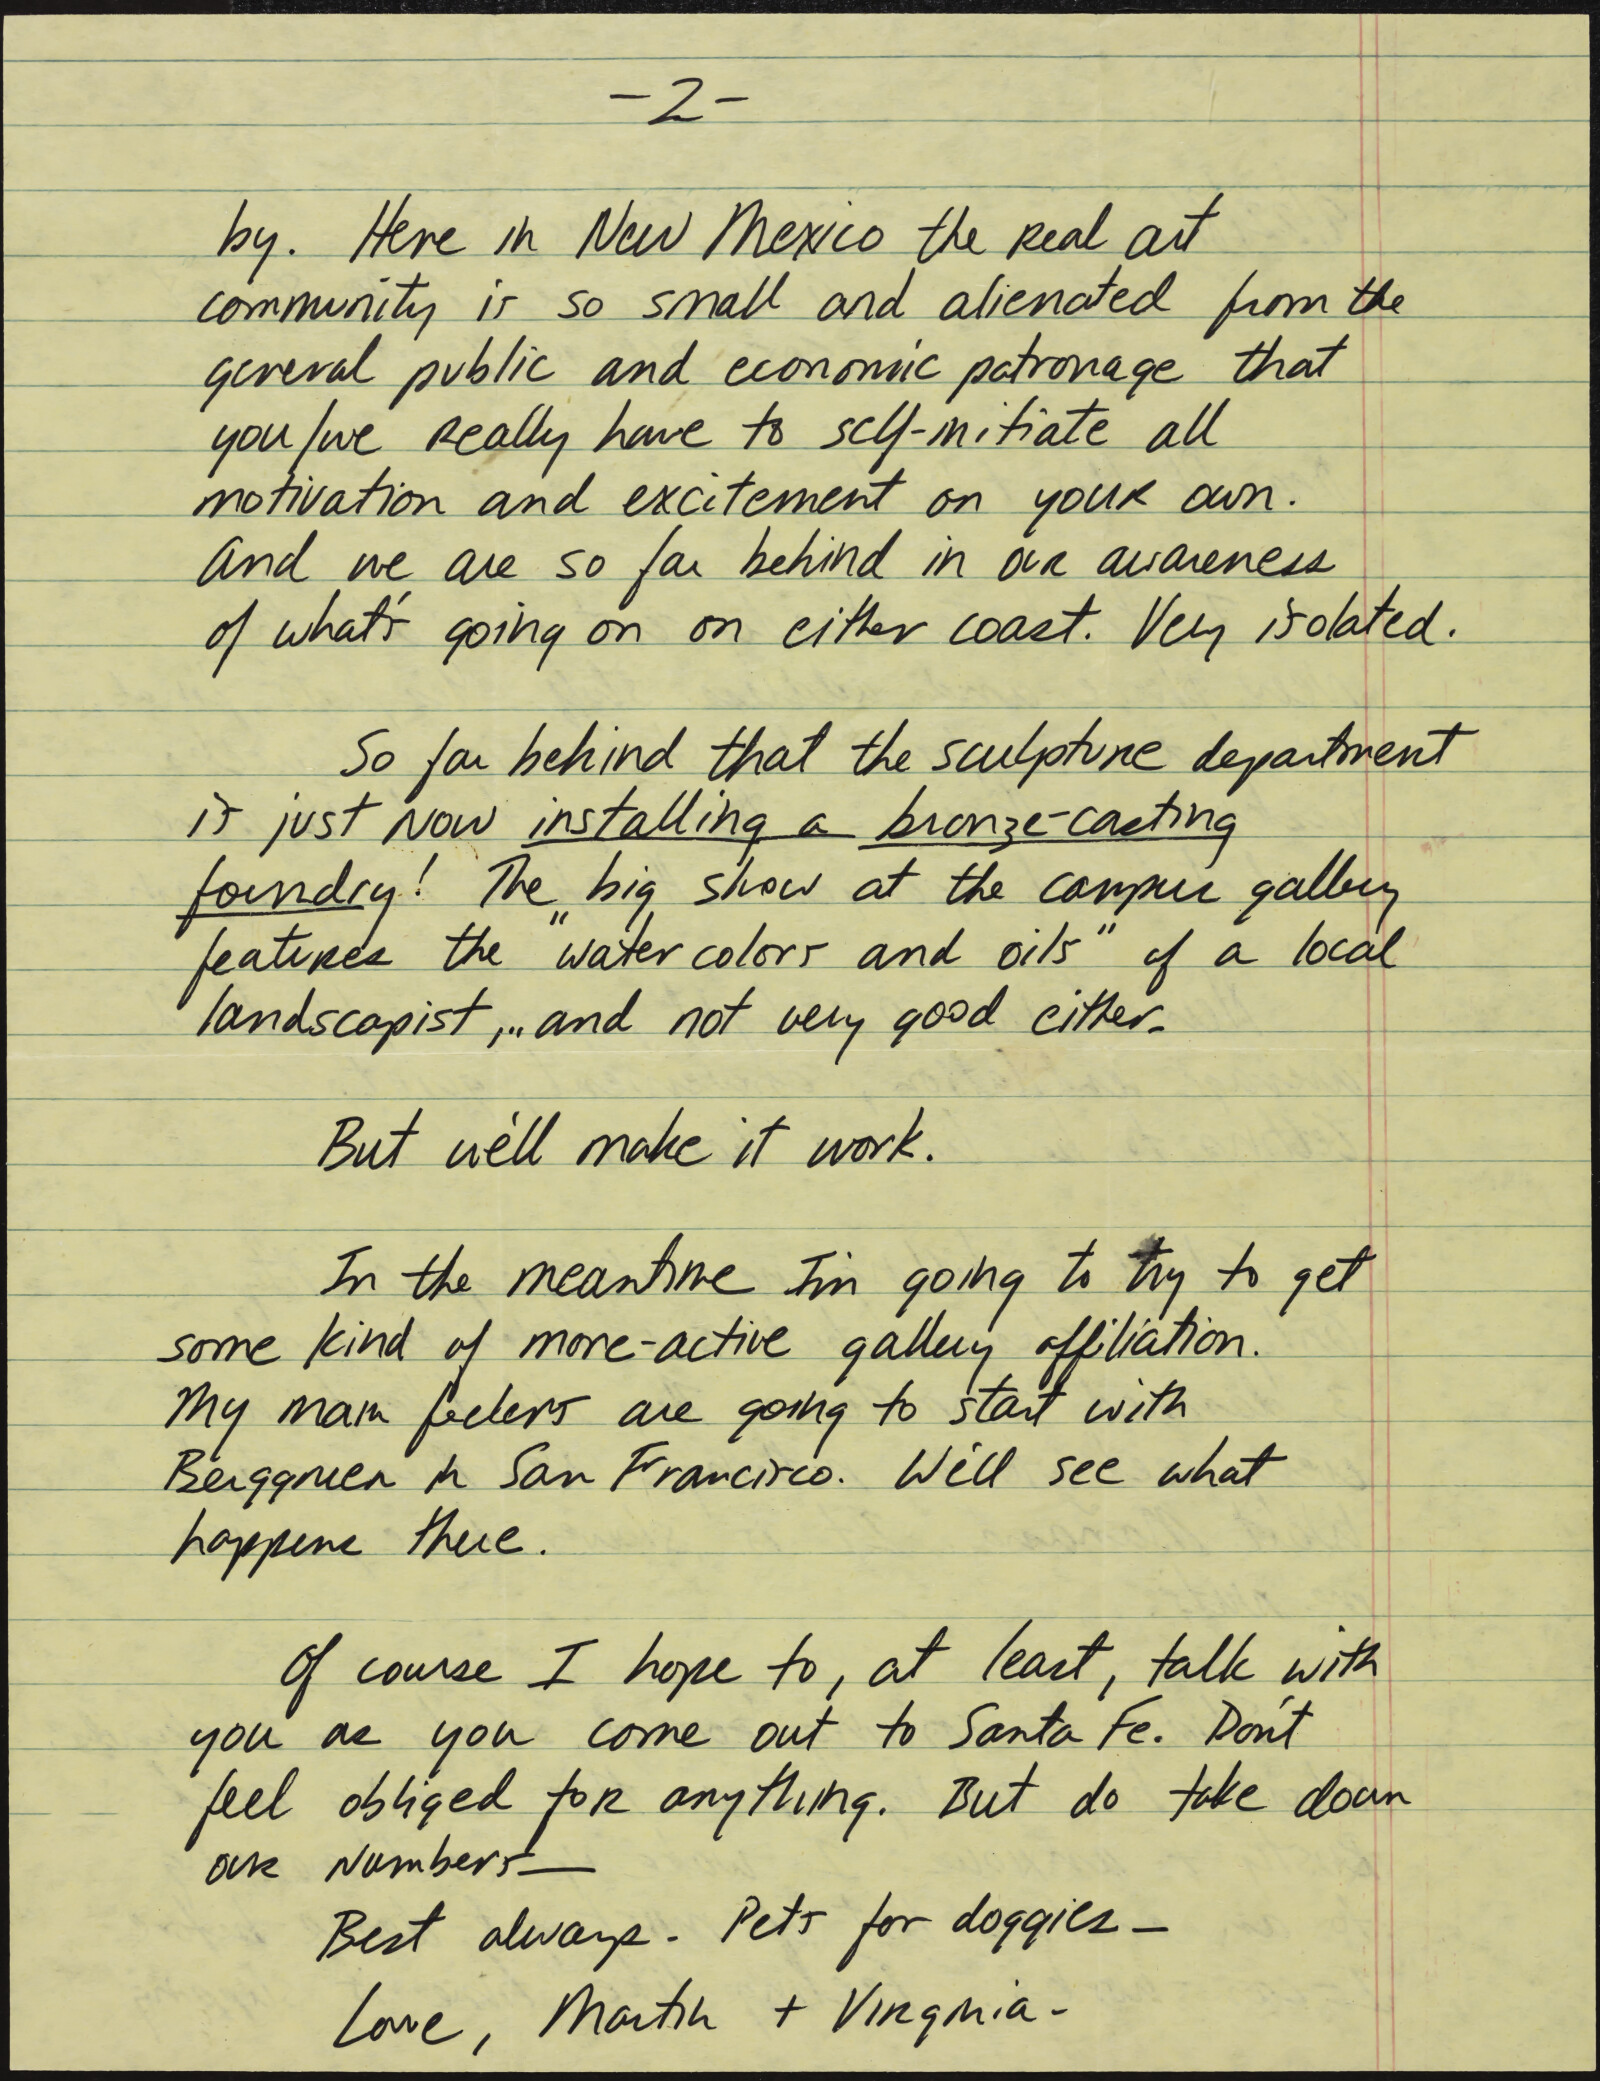 -2-
by. Here in New Mexico the real art
community is so small and alienated from the
general public and economic patronage that
you/we really have to self-initiate all
motivation and excitement on your own.
And we are so far behind in our awareness
of what's going on on either coast. Very isolated.
So far behind that the sculpture department
is just now installing a bronze-casting
foundry! The big show at the campus gallery
features the "watercolors and oils" of a local
landscapist,... and not very good either.
But we'll make it work.
In the meantime I'm going to try to get
some kind of more-active gallery affiliation.
My main feelers are going to start with
Berggruen in San Francisco. We'll see what
happens there.
Of course I hope to, at least, talk with
you as you come out to Santa Fe. Don't
feel obliged for anything. But do take down
our numbers—
Best always - Pets for doggies -
Love, Martin + Virginia -